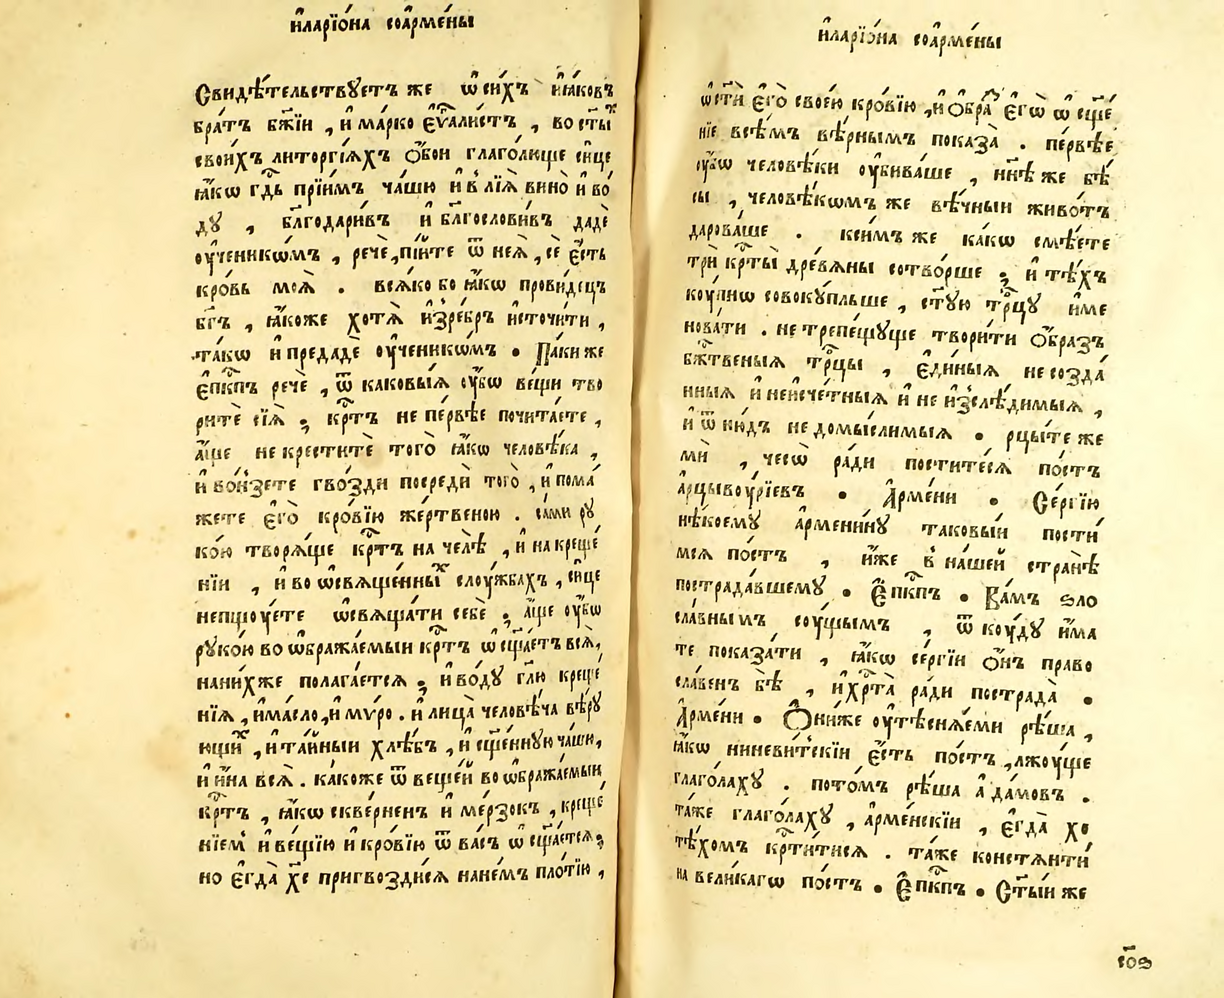 и҆ларїо́на соа҆рме́ны
Свидѣ́тельствꙋетъ же ѡ҆ си́хъ и҆ꙗ́ковъ
бра́тъ бж҃їи , и҆ ма́рко є҆ѵ҃алистъ , во ст҃ыⷯ
свои́хъ литоргїѧхъ ѻ҆́бои глаго́люще си́це
ꙗ҆́кѡ гд҃ь прїи́мъ ча́шю и҆ влїѧ̀ вино̀ и҆ во́
дꙋ , бл҃годари́въ и҆ бл҃гослови́въ дадѐ
оу҆ченикѡ́мъ , речѐ , пі́йте ѿ неѧ̀ , сѐ є҆́сть
кро́вь моѧ̀ . всѧ́ко бо ꙗ҆́кѡ прови́децъ
бг҃ъ , ꙗ҆́коже хотѧ̀ и҆зре́бръ и҆сточи́ти ,
та́кѡ и҆ предадѐ оу҆ченикѡ́мъ . Па́ки же
є҆пк҃пъ речѐ , ѿ каковы́ѧ оу҆́бѡ ве́щи тво
ритѐ сїѧ̀ ; кр҃тъ не пе́рвѣе почита́ете ,
а҆́ще не креститѐ того̀ ꙗ҆́кѡ человѣ́ка ,
и҆ вои́зете гво́зди посредѝ того̀ , и҆ пома́
жете є҆го̀ кро́вїю же́ртвеною . са́ми рꙋ
ко́ю творѧ́ще кр҃тъ на челѣ̀ , и҆ на креще́
нїи , и҆ во ѡ҆свѧще́нныⷯ слоу́жбахъ , си́це
непщоуе́те ѡ҆свѧща́ти себѐ ; а҆́ще оу҆́бѡ
рꙋко́ю во ѡ҆бража́емыи кр҃тъ ѡ҆сщ҃а́етъ всѧ̀ ,
на ни́хже полага́етсѧ ; и҆ во́дꙋ гл҃ю креще́
нїѧ , и҆ ма́сло , и҆ мѵ́ро . и҆ лица̀ человѣ́ча вѣ́рꙋ
ющиⷯ , и҆ та́йныи хлѣ́бъ , и҆ сщ҃е́нную ча́шꙋ ,
и҆ и҆́на всѧ̀ . ка́коже ѿ веще́й во ѡ҆бража́емыи
кр҃тъ , ꙗ҆́кѡ скве́рненъ и҆ ме́рзокъ , креще́
нїемⸯ и҆ ве́щїю и҆ кро́вїю ѿ ва́съ ѡ҆сщ҃а́етсѧ ;
но є҆гда̀ хс҃ пригвозди́сѧ на не́мъ пло́тїю ,
и҆ларїо́на соа҆рме́ны
ѡ҆ст҃ѝ є҆го̀ свое́ю кро́вїю , и҆ ѻ҆́браⷥ є҆гѡ̀ ѡ҆сщ҃е́
нїе всѣ́мъ вѣ́рнымъ показа̀ . пе́рвѣе
оу҆́бѡ человѣ́ки оу҆бива́ше , нн҃ѣ же бѣ́
сы , человѣ́кѡмъ же вѣ́чныи живо́тъ
дарова́ше . ксимъ же ка́кѡ смѣ́ете
трѝ кр҃ты̀ древѧ́ны сотво́рше ; и҆ тѣ́хъ
коу́пнѡ совокꙋ́пльше , ст҃ꙋю тр҃цꙋ и҆ме
нова́ти . не трепе́щꙋще твори́ти ѻ҆́бразъ
бж҃твеныѧ тр҃цы , є҆ди́ныѧ несозда́
нныѧ и҆ неисче́тныѧ и҆ не и҆зслѣ́димыѧ ,
и҆ ѿню́дъ недомы́слимыѧ . рцы́те же
мѝ , чесѡ̀ ра́ди постите́сѧ по́стъ
а҆рцывоу́рїевъ . А҆рме́ни . Се́ргїю
нѣ́коемꙋ а҆рмени́нꙋ таковы́и пости́
мсѧ по́стъ , и҆́же в на́шей странѣ̀
пострада́вшемꙋ . Є҆пк҃пъ . Ва́мъ ѕло
сла́внымъ соу́щымъ , ѿкоу́дꙋ и҆́ма
те показа́ти , ꙗ҆́кѡ се́ргїи ѻ҆́нъ право
сла́венъ бѣ̀ , и҆ хр҃та̀ ра́ди пострада̀ .
А҆рме́ни . Ѻ҆ни́же оу҆тѣснѧ́еми рѣ́ша ,
ꙗ҆́кѡ ниневи́тскїи є҆́сть по́стъ , лжоу́ще
глаго́лахꙋ . пото́мъ рѣ́ша а҆да́мовъ .
та́же глаго́лахꙋ , а҆рме́нскїи , є҆гда̀ хо
тѣ́хомъ кр҃ти́тисѧ . та́же константи́
на вели́кагѡ по́стъ . Є҆пк҃пъ . Ст҃ы́и же